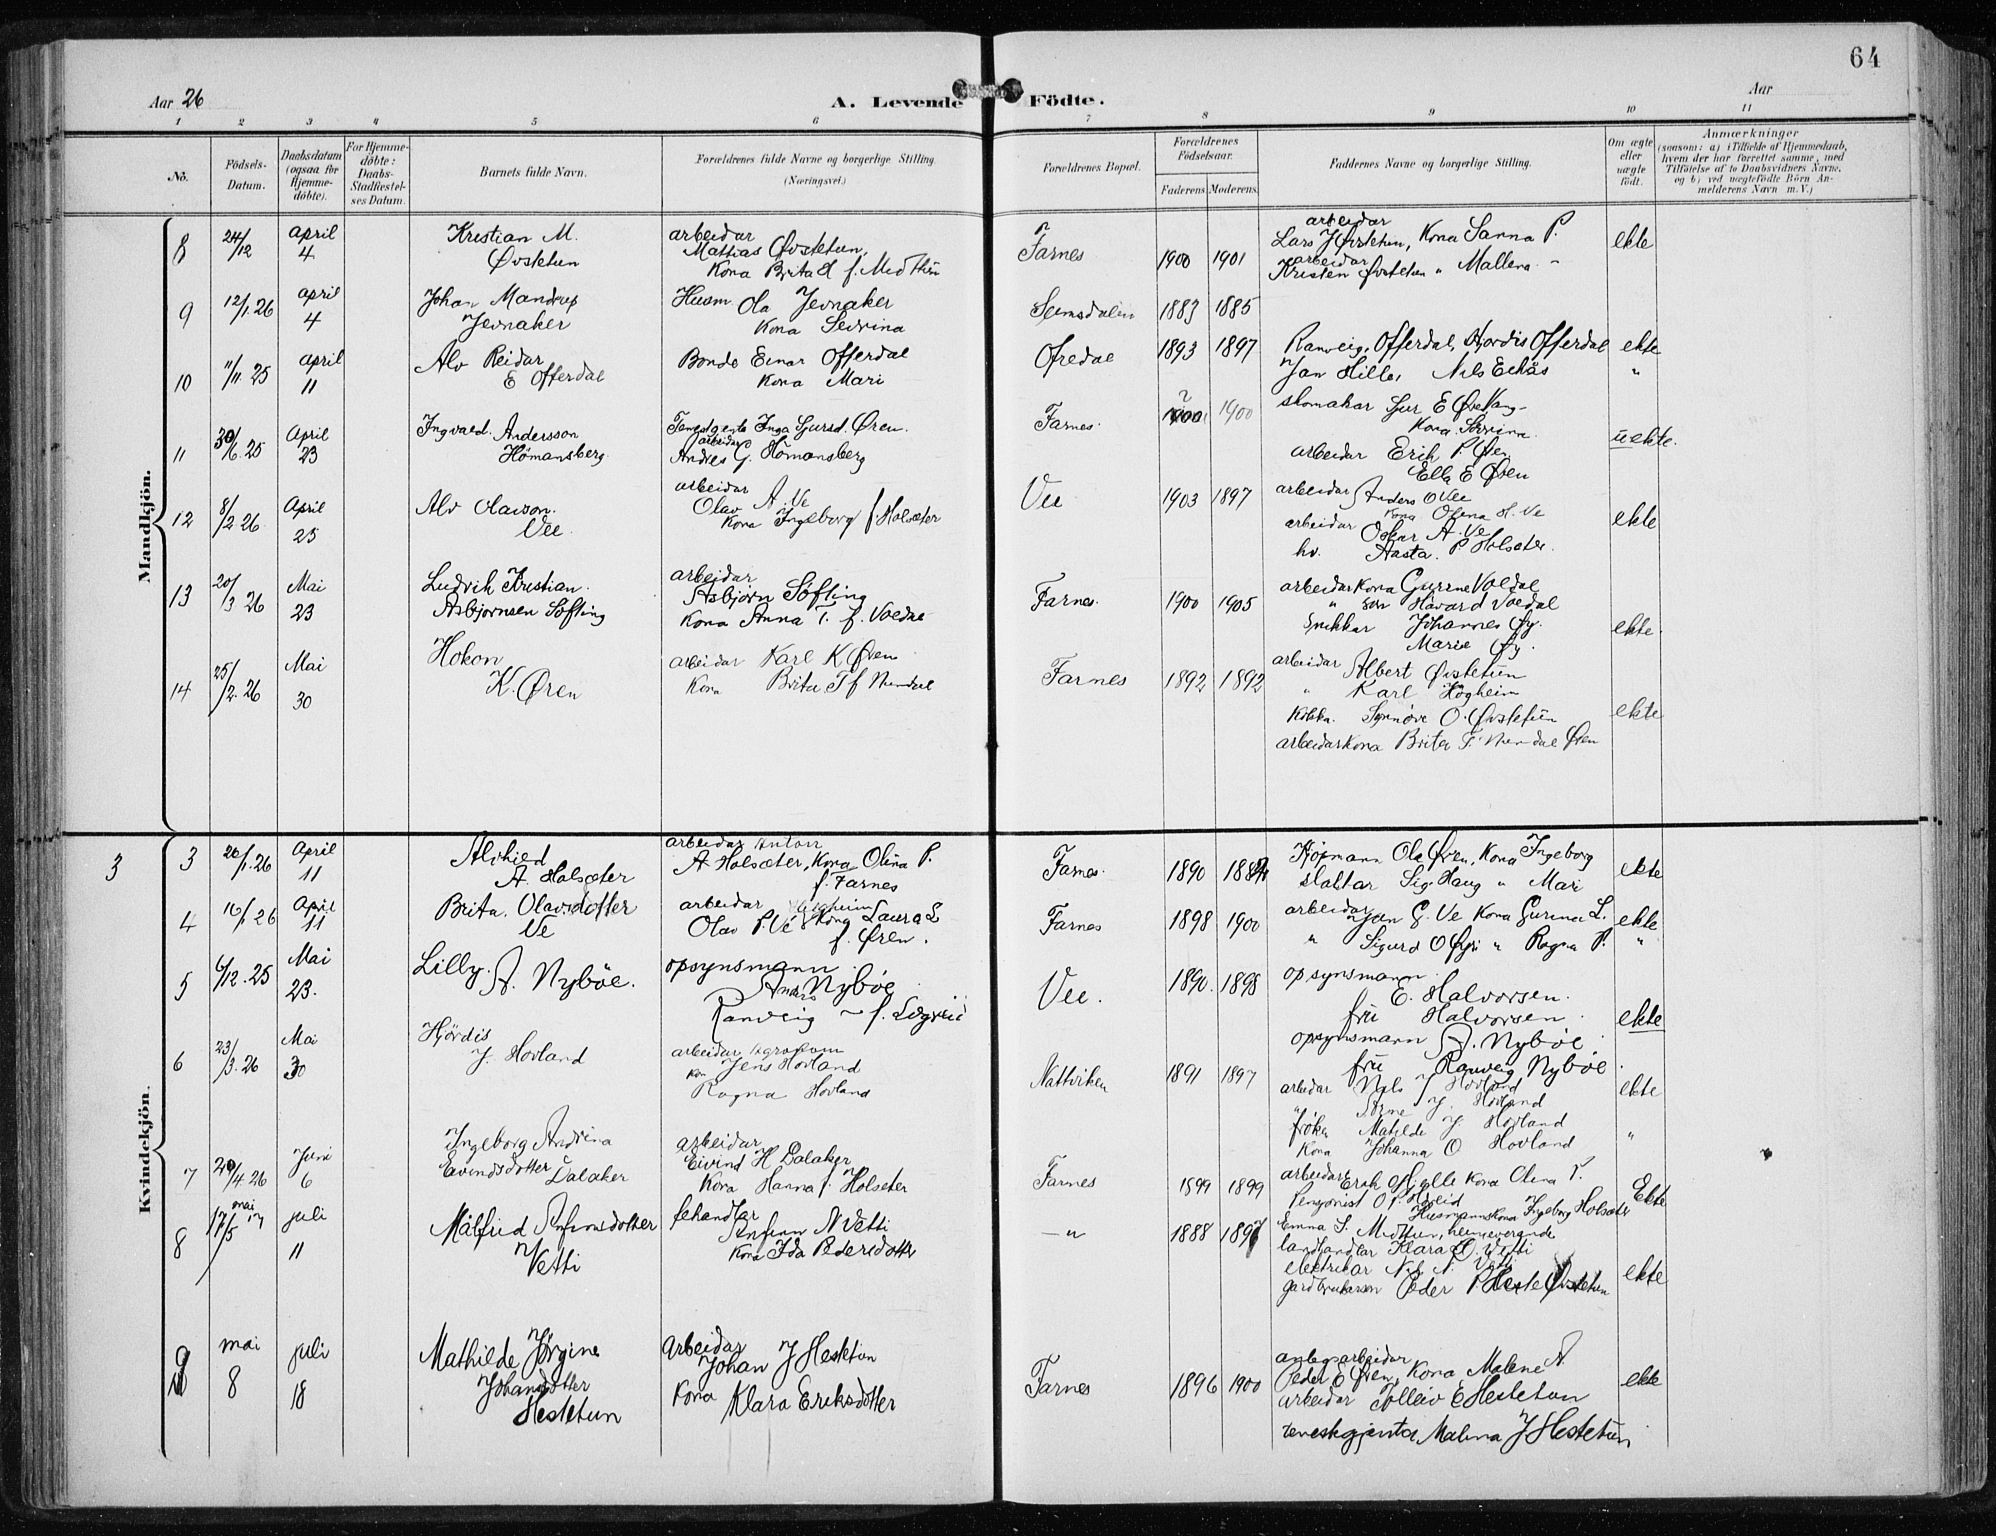 64
Aar 26
A. Levende Födte.
Aar
1 2 3 4 5 6 7 8 9 10 11
No.
Födsels-
Datum.
Daabsdatum
(ogsaa for
Hjemme-
döbte).
For Hjemme-
döbte:
Daabs-
Stadfæstel-
ses Datum.
Barnets fulde Navn.
Forældrenes fulde Navne og borgerlige Stilling.
(Næringsvei.)
Forældrenes Bopæl.
Forældrenes
Födselsaar.
Faderens. Moderens.
Faddernes Navne og borgerlige Stilling.
Om ægte
eller
uægte
födt.
Anmærkninger
(saasom: a) i Tilfælde af Hjemmedaab,
hvem der har forrettet samme, med
Tilföielse af to Daabsvidners Navne.
og b) ved uægtefödte Börn An-
melderens Navn m. V.)
Mandkjön.
8
24/12
April
4
Kristian M.
Øvstetun
arbeidar
Mattias Øvstetun,
Kona Brita f. Midttun
Farnes
1900 1901
arbeidar
Lars J Øvstetun, Kona Sanna P.
arbeidar
Kristen Øvstetun " Mallena
ekte
9
12/1.26
April
4
Johan Mandrup
Jevnaker
Husm. Ola Jevnaker
Kona Sevrina
Seimsdalen
1883 1885
10
11/11.25
April
11
Alv Reidar
E Offerdal
Bonde Einar Offerdal
Kona Mari
Ofredal
1893 1897
Ranveig Offerdal, Hjordis Offerdal
Jan Hiller Nils Eikås
ekte
"
11
30/6.25
April
23
Ingvald Andersson
Hömansberg
Tenestgenta Inga Sjursd. Øren.
arbeidar
Andres G. Hömansberg
Farnes.
1900
skomakar Sjur E Øvehaug
Kona Sevrina
arbeidar Erik P. Øren
Ella E Øren
uekte.
12
8/2.26
April
25
Alv Olavson.
Vee
arbeidar
Olav A. Ve
Kona Ingeborg f Holsæter
Vee
1903 1897
arbeidar Anders O Vee
Kona Olina H. Ve
arbeidar Oskar A. Ve
hv. Aasta P Holsæter.
ekte
13
20/3 26
Mai
23
Ludvik Kristian.
Asbjørnsen Söfting
arbeidar
Asbjørn Söfting
Kona Anna T. f. Voldal
Farnes.
1900 1905
arbeidarkona Gurine Voldal
" son Håvard Voldal
Snikkar Johannes Øy.
Marie Øy.
ekte.
14
25/2.26
Mai
30
Hokon
K. Øren
arbeidar Karl K Øren
Kona Brita T f Nundal
Farnes
1892 1892
arbeidar Albert Øvstetun
" Karl Högheim
Kokka. Synnöve O. Øvstetun
arbeidarkona Brita T. Nundal Øren
ekte
Kvindekjön.
3
3
26/1.26
April
11
Alvhied
A. Holsæter
arbeidar Anton
A Holsæter, Kona Olina P.
f. Farnes
Farnes.
1890
Kjøpmann Ola Øren, Kona Ingeborg
slaktar Sig. Haug " Mari
ekte
4
10/1 26
April
11
Brita Olavsdotter
Ve
arbeidar
Olav P. Ve Kona Laura L
f. Øren.
Farnes
1898 1900
arbeidar
Jan G. Ve Kona Gurina L.
" Sigurd O Øyri " Ragna P.
ekte
"
5
6/12.25
Mai
23.
Lilly
A. Nybøe.
opsynsmann
Anders Nybøe
Ranveig ~ f. Lægreid
Vee.
1890. 1898
opsynsmann
E. Halvorsen.
fru Halvorsen
opsynsmann A. Nybøe
fru Ranveig Nybøe.
ekte
6
23/3.26
Mai
30
Hjördis
J. Hovland
arbeidar Agronom
Jens Hovland
Ragna Hovland
Nattviken
1891 1897
arbeidar Nils J Hovland
" Arne J. Hovland
fröken Matilde J Hovland
Kona Johanna O Hovland
ekte
"
7
20/4 26
Juni
6
Ingeborg Andrina
Eivindsdotter Dalaker
arbeidar
Eivind H Dalaker
Kona Hanna f. Holsæter
Farnes
1899 1899
arbeidar Erik O Hjelle Kona Olina T.
Pensjonist O P. Hæreid
Husmannskona Ingeborg Holsæter
Ekte
8
mai
17/5
juli
11
Målfrid Anfinnsdotter
Vetti
fehandlar
Anfinn N Vetti
Kona Ida Pedersdotter
— " —
1888 1897
Emma S. Midttun, heimeverande
landhandlar Klara O. Vetti
elektrikar Nils N. Vetti
gardbrukarson Peder P Øvstetun
ekte
9
mai
8
juli
18
Mathilde Jørgine
Johansdotter
Hestetun
Arbeidar
Johan J Hestetun
Kona Klara Eriksdotter
Farnes
1896 1900
anlegsarbeidar
Peder E Øren, Kona Malene A.
arbeidar Tolleiv E Hestetun
teneskgjenta Malina J Hestetun
ekte